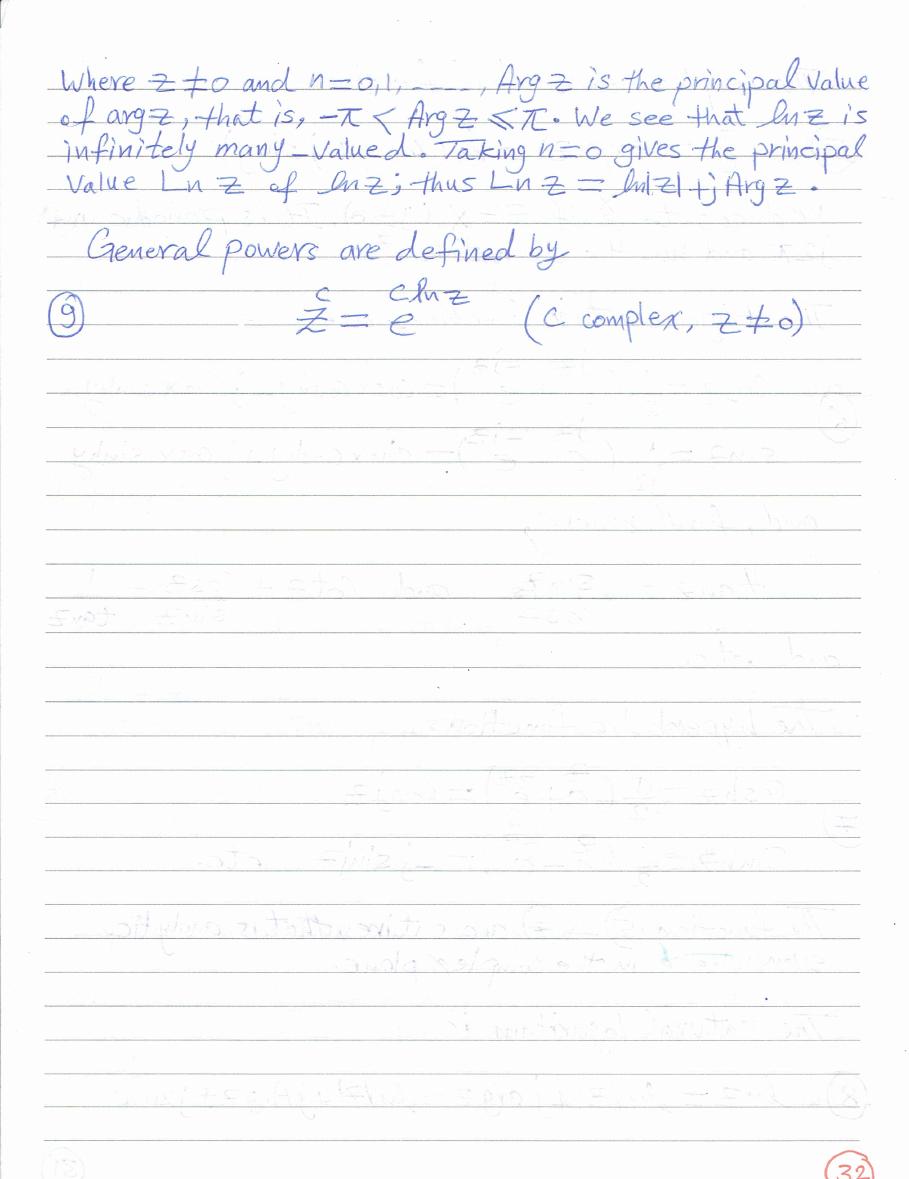 Where z ≠ 0 and n = 0, 1, ....., Arg z is the principal value
of arg z, that is, -π < Arg z ⩽ π. We see that ln z is
infinitely many-valued. Taking n=0 gives the principal
value Ln z of ln z; thus Ln z = ln|z| + j Arg z.
General powers are defined by
(9) z^c = e^{c ln z} (c complex, z ≠ 0)
32